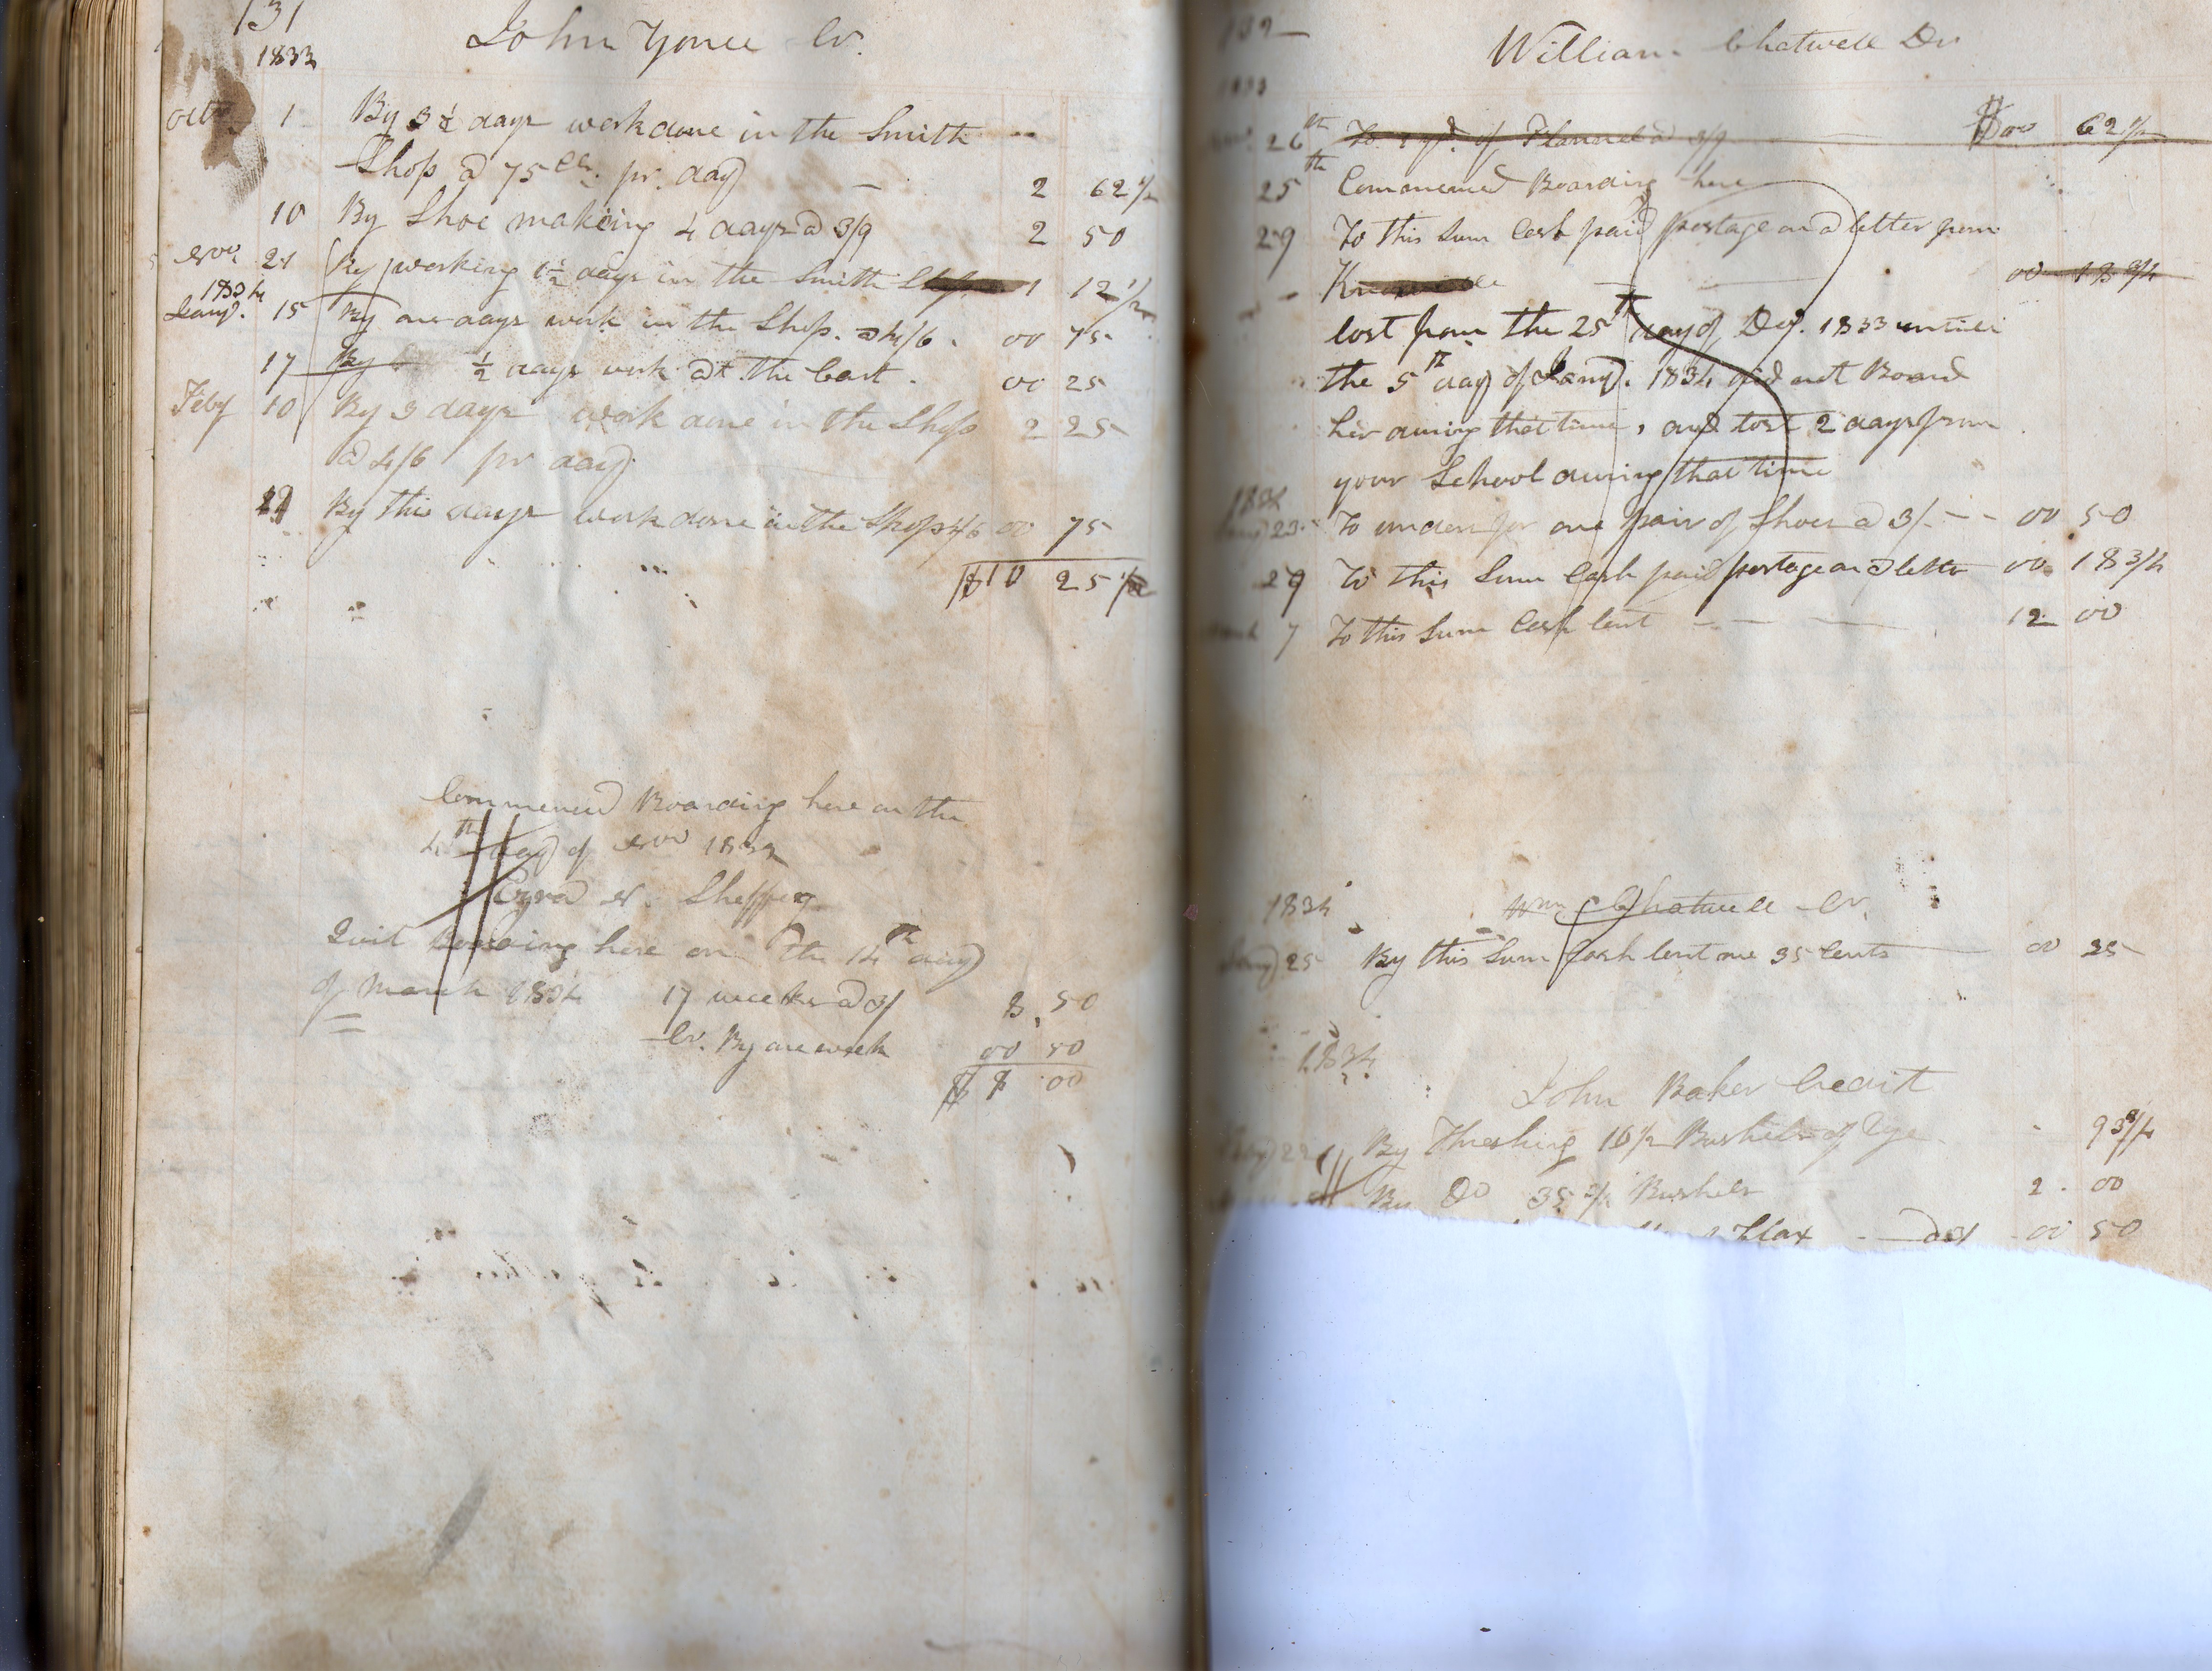 131
1833
John Yonce Cr.
Octr. 1 By 3 1/2 days work done in the Smith
Shop @ 75 cts. pr. day — 2 62 1/2
10 By Shoe making 4 days @ 3/9 2 50
Nov 21 By working 1 1/2 days in the Smith Shop 1 12 1/2
1834
Jany. 15 By one days work in the Shop. @ 4/6. 00 75
17 By 1/2 days work at the 00 25
Feby 10 By 3 days work done in the Shop 2 25
@ 4/6 pr day
By this days work done in the Shop 4/6 00 75
$10 25
Commenced Boarding here on the
4th day of Nov 1833
Ezra N. Sheffey
Quit Boarding here on the 14th day
of March 1834 17 weeks @ 3/ 8,50
Cr. By one week 00 50
$ 8 00
132
1833
William Chatwell Dr
26th To 1 yd. of Flannel @ 3/9 $00 62 1/2
25th Commenced Boarding here
29 To this Sum Cash paid postage on a letter from
Knoxville — — 00 18 3/4
lost from the 25th day of Dec. 1833 untill
the 5th day of Jany. 1834 did not Board
her during that time, and lost 2 days from
your School during that time
1834
23 To for one pair of Shoes @ 3/ - - 00 50
29 To this Sum Cash paid postage on a letter 00 18 3/4
March 7 To this Sum Cash lent - - — 12 00
1834 Wm Chatwell Cr.
Jany 25 By this Sum Cash lent me 35 Cents — 00 35
1834
John Baker Credit
22 By Threshing 16 1/2 Bushels of Rye 93 3/4
By Do 35 Bushels 2. 00
Flax 00 50